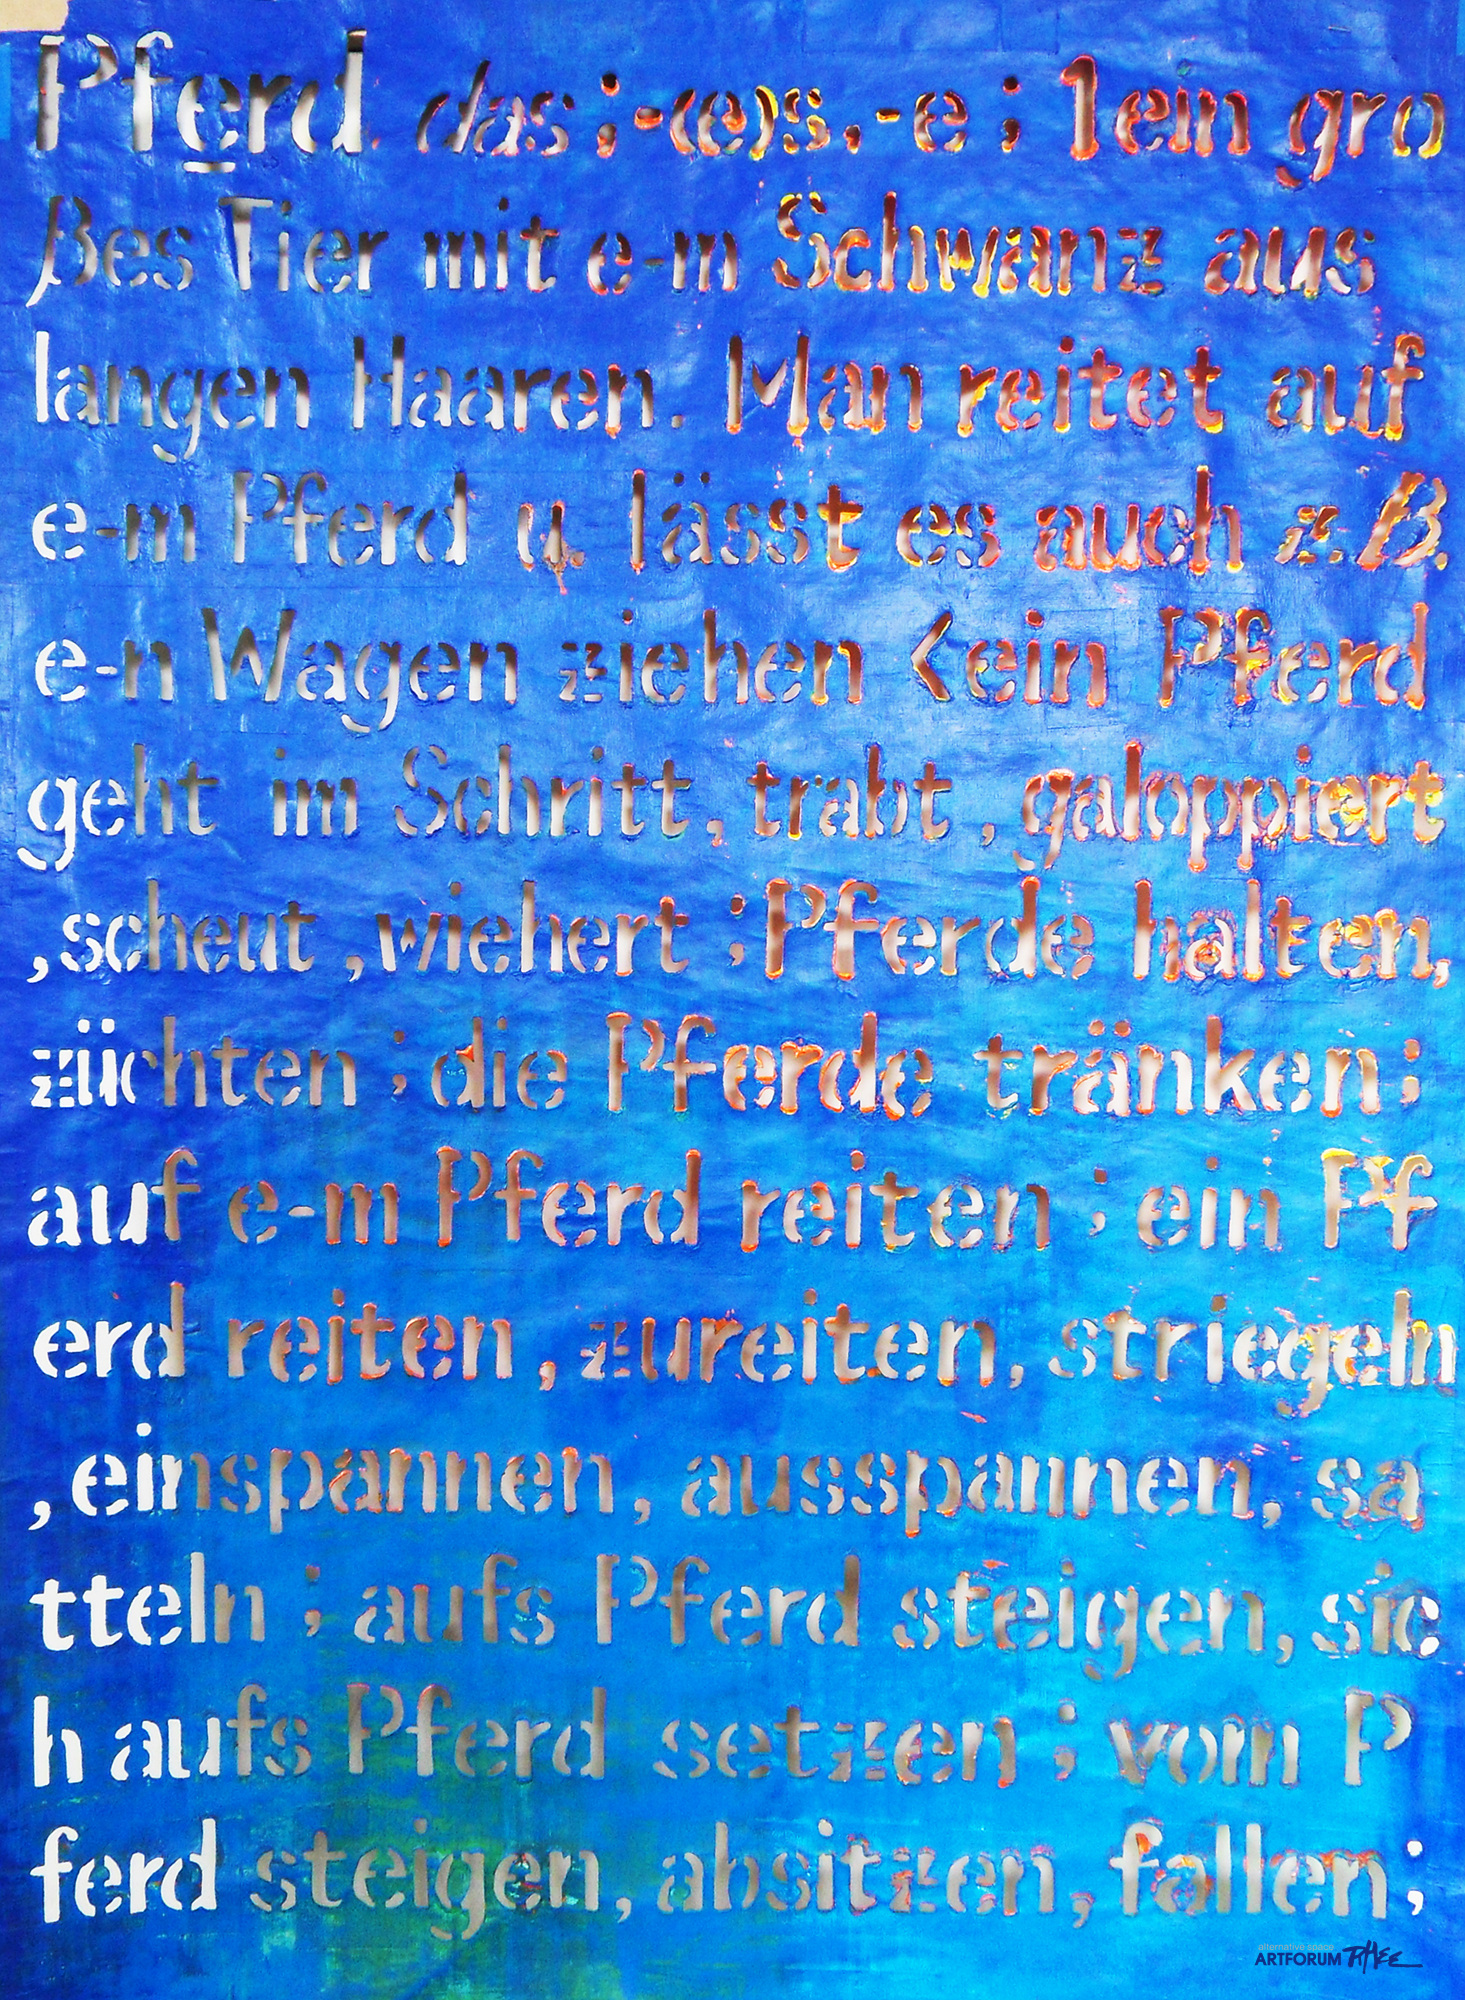 Pferd das ; -(e)s, -e ; 1ein gro
ßes Tier mit e-m Schwanz aus
langen Haaren. Man reitet auf
e-m Pferd u. lässt es auch z.B.
e-n Wagen ziehen <ein Pferd
geht im Schritt, trabt , galoppiert
,scheut ,wiehert ; Pferde halten,
züchten ; die Pferde tränken ;
auf e-m Pferd reiten ; ein Pf
erd reiten , zureiten, striegeln
,einspannen, ausspannen, sa
tteln ; aufs Pferd steigen, sic
h aufs Pferd setzen ; vom P
ferd steigen, absitzen, fallen ;
alternative space
ARTFORUM RHEE